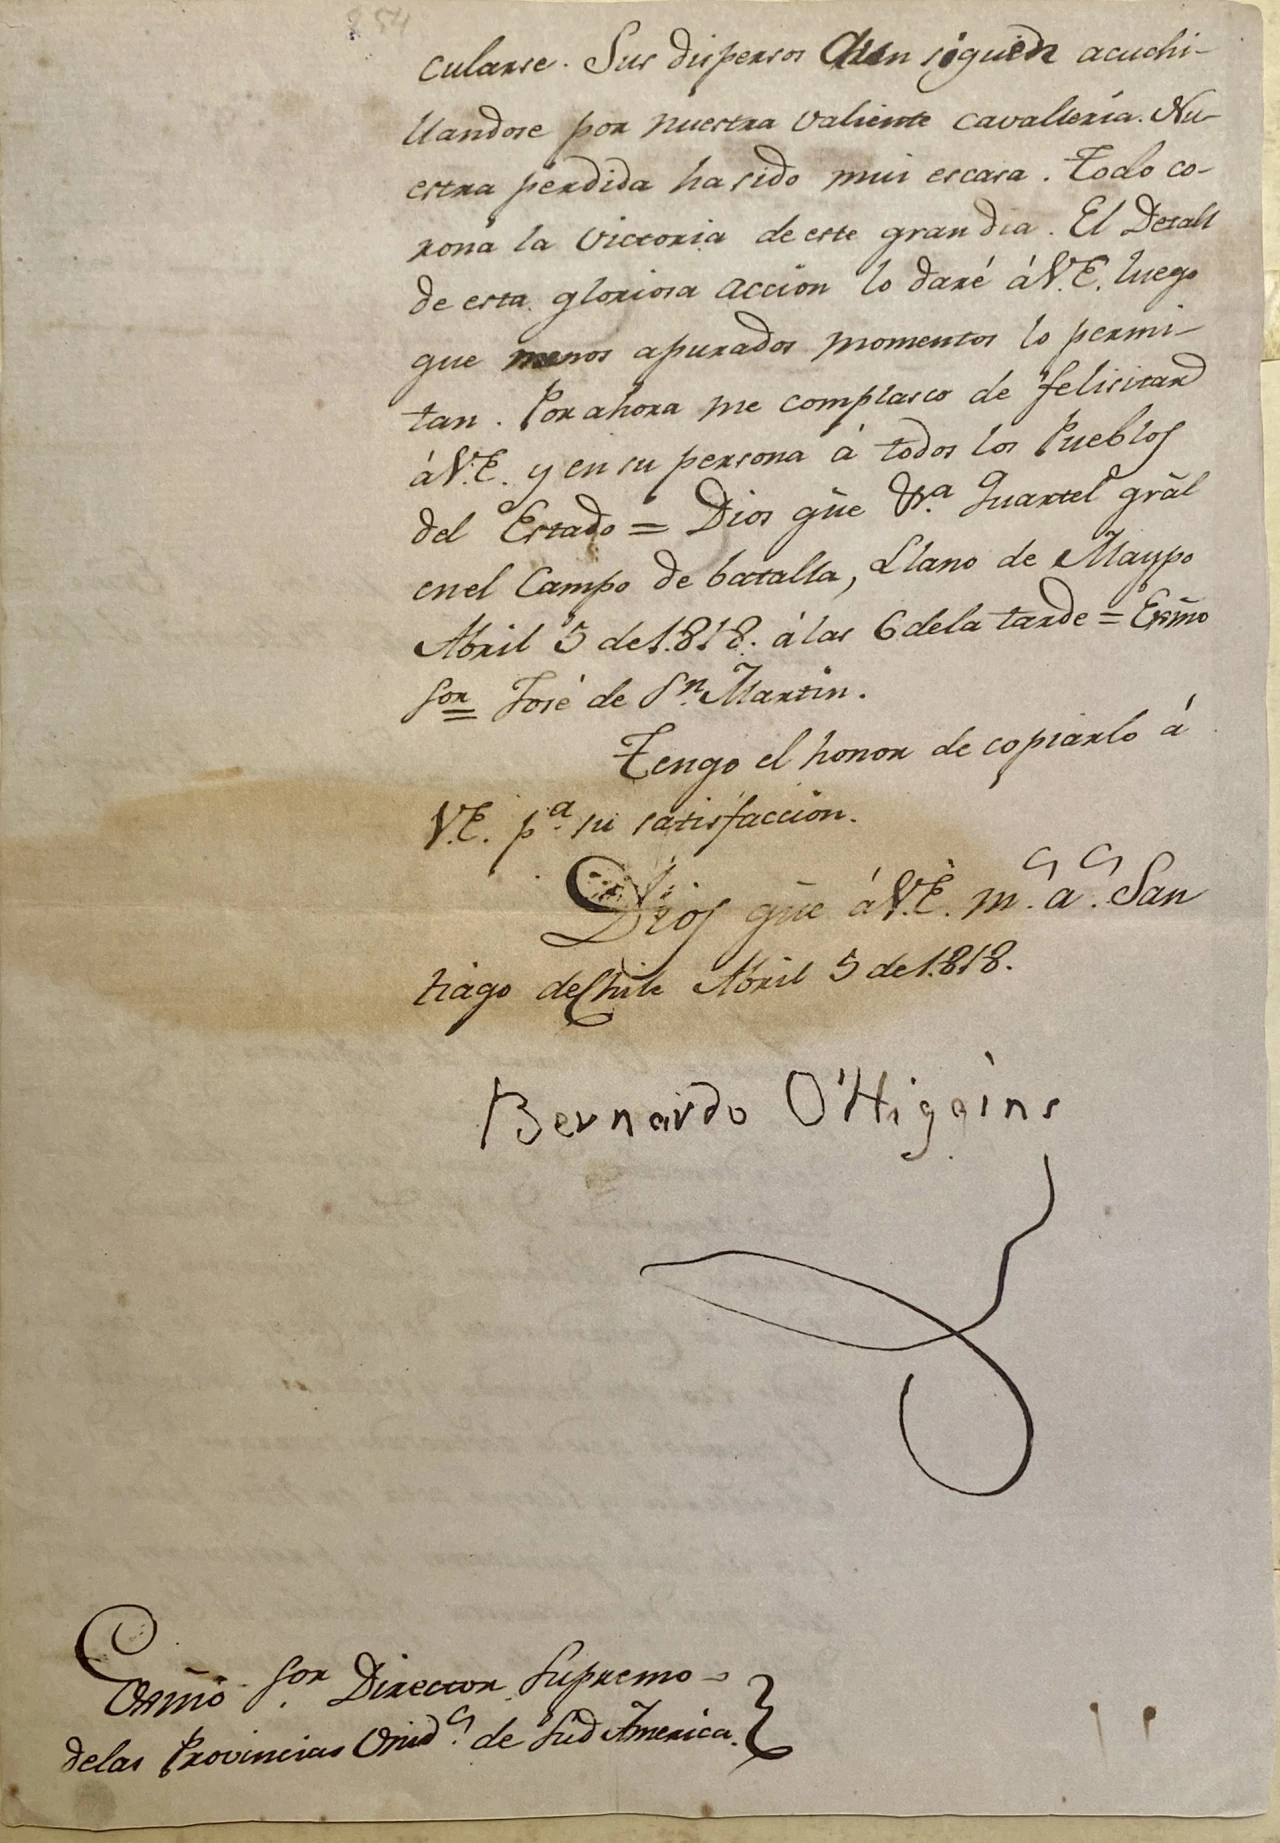 854
cularse. Sus dispersos aun siguen acuchi-
llandose por nuestra valiente cavallería. Nu-
estra perdida ha sido mui escasa. Todo co-
rona la Victoria de este gran dia. El Detall
de esta gloriosa accion lo daré á V.E. luego
que menos apurados momentos lo permi-
tan. Por ahora me complasco de felicitar
á V.E. y en su persona á todos los Pueblos
del Estado = Dios güe &ra. Quartel grãl
en el Campo de batalla, Llano de Maypo
Abril 5 de 1.818. á las 6 de la tarde = Exmõ
Sor José de Sn. Martin.
Tengo el honor de copiarlo á
V.E. pa. su satisfaccion.
Dios güe á V.E. ms. as. San
tiago de Chile Abril 5 de 1.818.
Bernardo O'Higgins
Exmõ Sor Director Supremo
de las Provincias Unids. de Sud America.